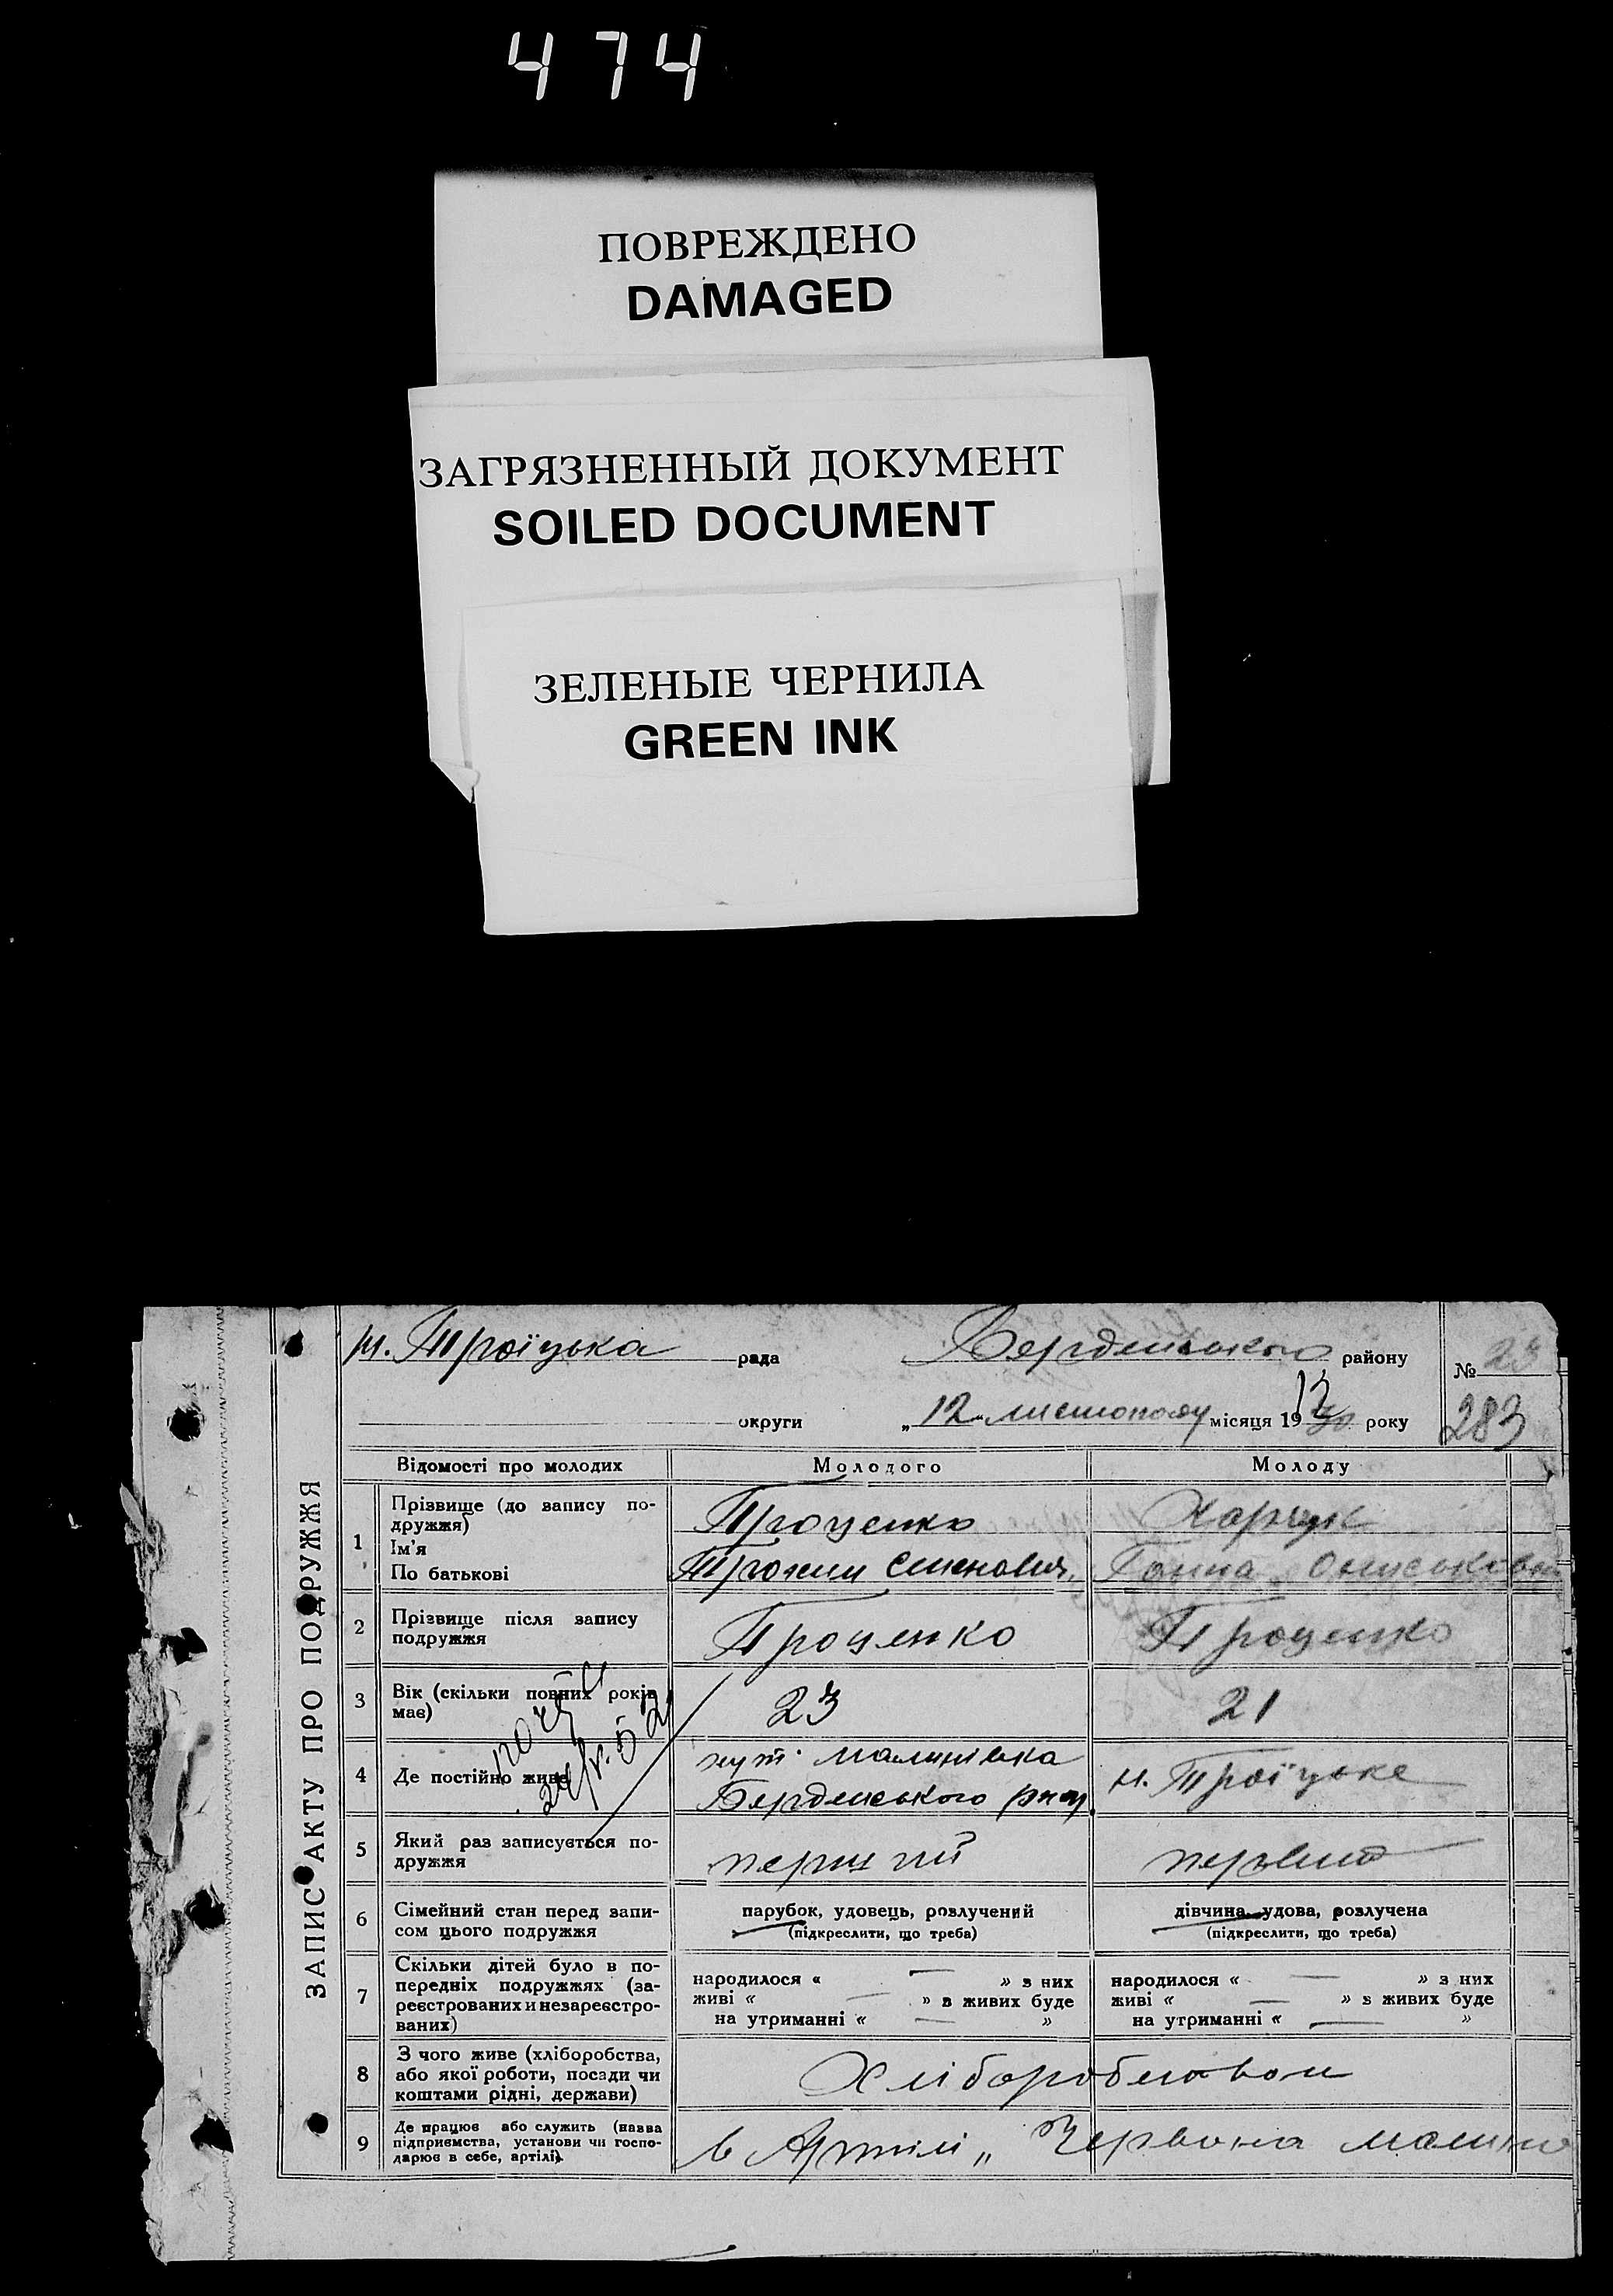 474
ПОВРЕЖДЕНО
DAMAGED
ЗАГРЯЗНЕННЫЙ ДОКУМЕНТ
SOILED DOCUMENT
ЗЕЛЕНЫЕ ЧЕРНИЛА
GREEN INK
ЗАПИС АКТУ ПРО ПОДРУЖЖЯ
Троїцька рада району № 23
округи „12„ листопаду місяця 19 року 283
Відомості про молодих Молодого Молоду
1 Прізвище (до запису подружжя) Проценко Харчук
Ім'я
По батькові Трохим Семенович Ганна
2 Прізвище після запису подружжя Проценко Проценко
3 Вік (скільки повних років має) 23 21
4 Де постійно живе хут. Малинівка Н. Троїцьке
Берденського р-ну
5 Який раз записується по-
дружжя перший первий
6 Сімейний стан перед запи- парубок, удовець, розлучений дівчина, удова, розлучена
сом цього подружжя (підкреслити, що треба) (підкреслити, що треба)
7 Скільки дітей було в по-
передніх подружжях (за- народилося « — » з них народилося « — » з них
реєстрованих и незареєстро- живі « — » з живих буде живі « — » з живих буде
ваних) на утриманні « — » на утриманні « — »
8 З чого живе (хліборобства,
або якої роботи, посади чи Хліборобством
коштами рідні, держави)
9 Де працює або служить (назва
підприємства, установи чи госпо- в Артілі „Червона
дарює в себе, артілі)